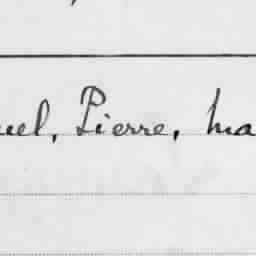 uel, Pierre, ma